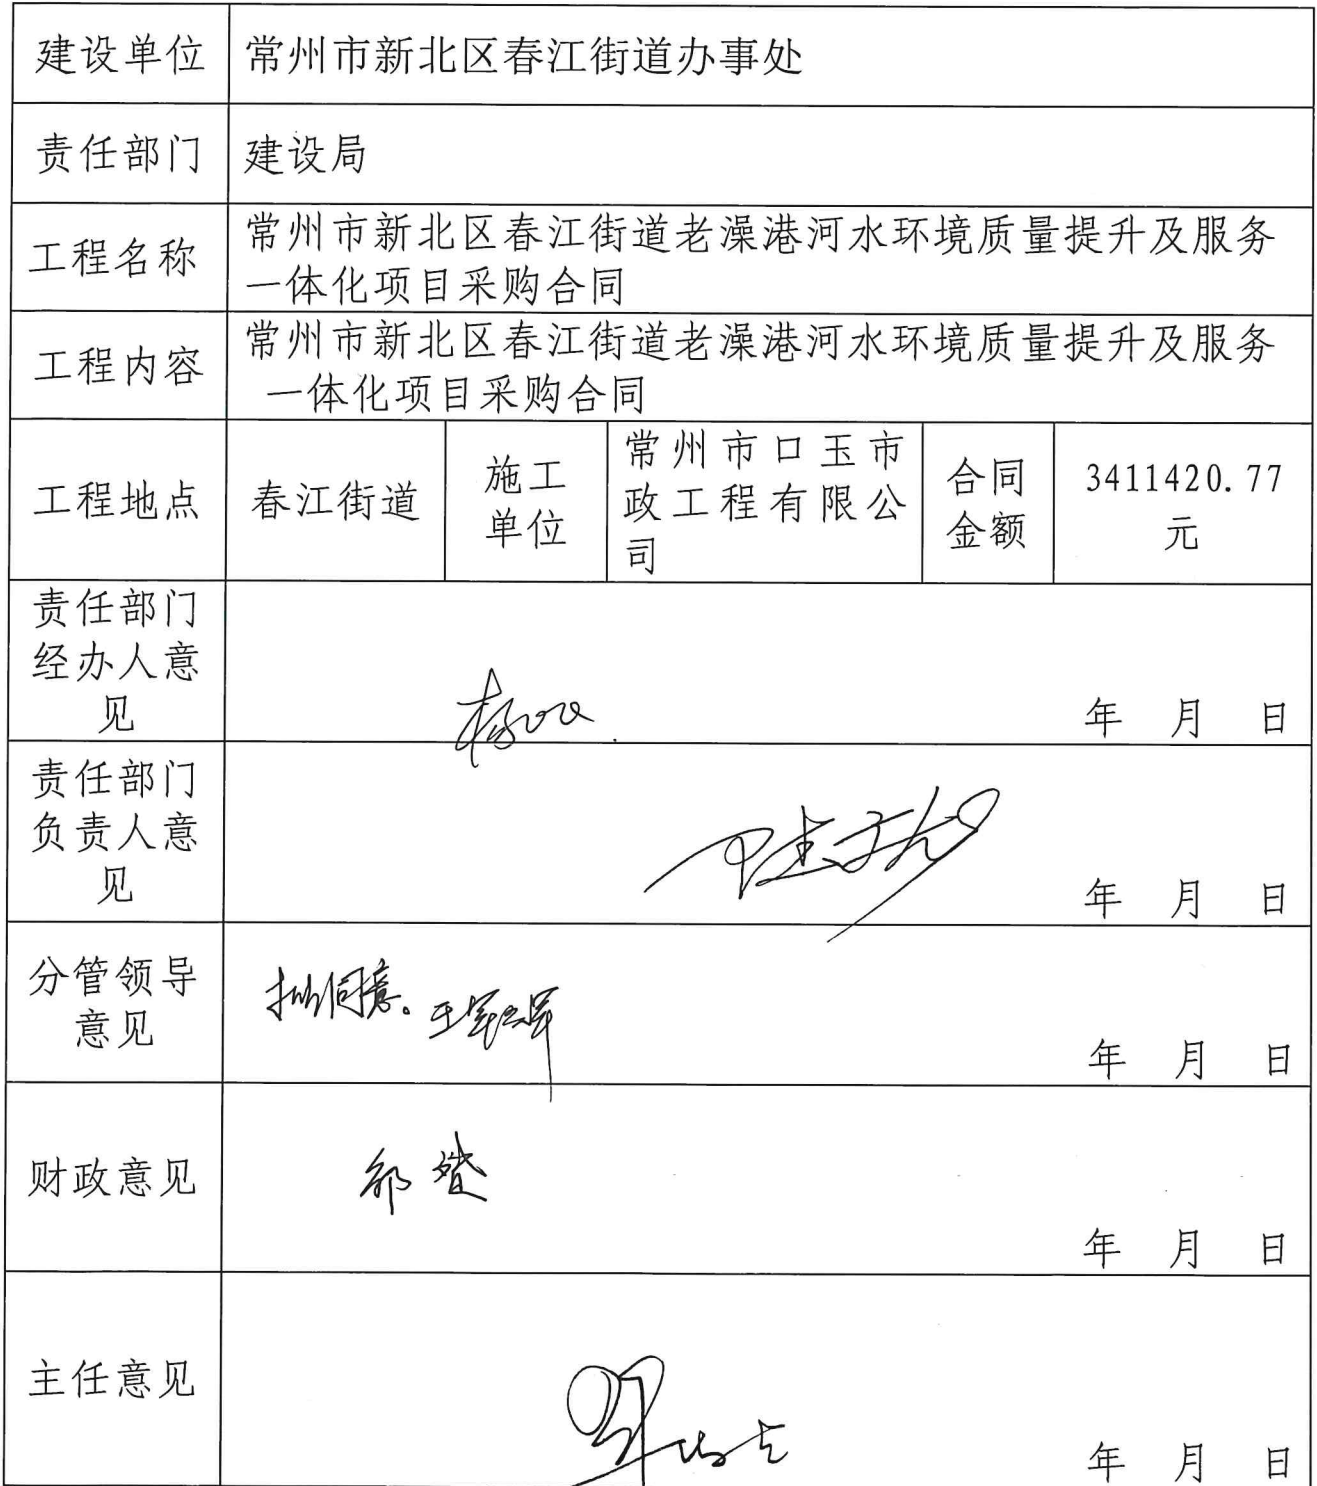 建设单位 常州市新北区春江街道办事处
责任部门 建设局
工程名称 常州市新北区春江街道老澡港河水环境质量提升及服务
一体化项目采购合同
工程内容 常州市新北区春江街道老澡港河水环境质量提升及服务
一体化项目采购合同
工程地点 春江街道
施工
单位
常州市口玉市
政工程有限公
司
合同
金额
3411420.77
元
责任部门
经办人意
见
年 月 日
责任部门
负责人意
见
年 月 日
分管领导
意见
拟同意。
年 月 日
财政意见
年 月 日
主任意见
年 月 日